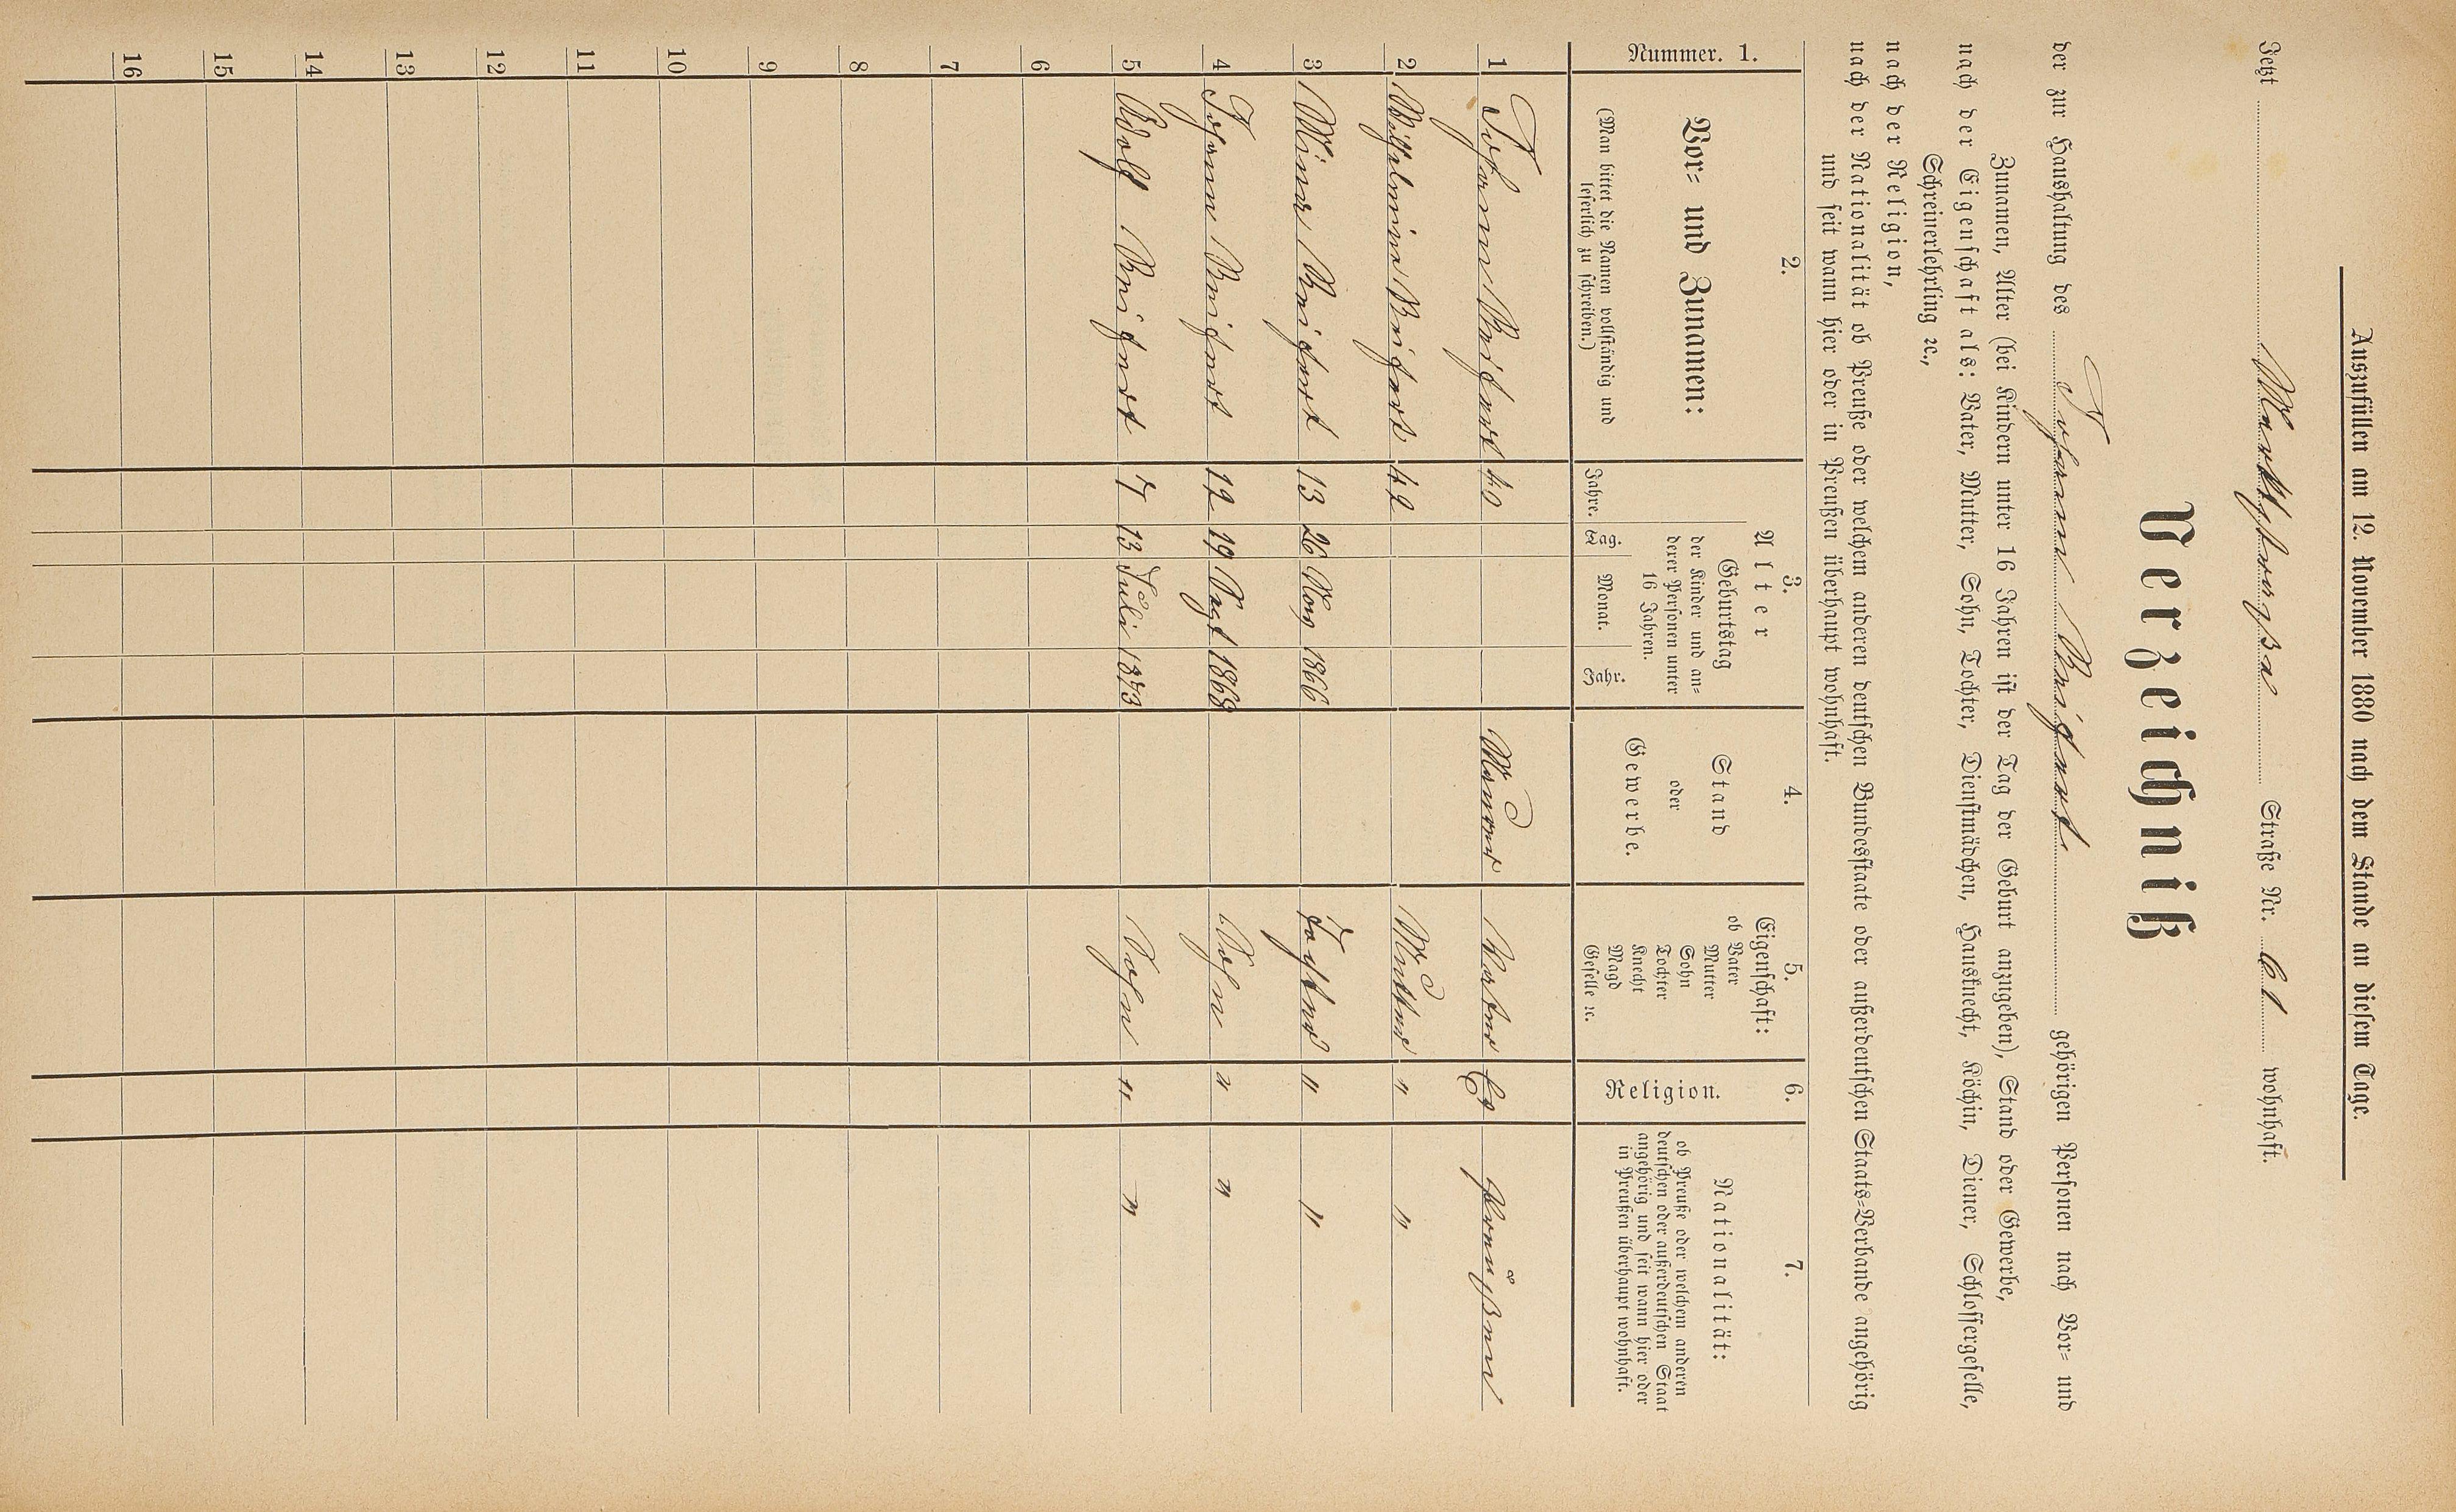 Auszufüllen am 12. November 1880 nach dem Stande an diesem Tage.
Jetzt Marktstraße Straße Nr. 61 wohnhaft.
Verzeichniß
der zur Haushaltung des Johann gehörigen Personen nach Vor= und
Zunamen, Alter (bei Kindern unter 16 Jahren ist der Tag der Geburt anzugeben), Stand oder Gewerbe,
nach der Eigenschaft als: Vater, Mutter, Sohn, Tochter, Dienstmädchen, Hausknecht, Köchin, Diener, Schlossergeselle,
Schreinerlehrling ꝛc.,
nach der Religion,
nach der Nationalität ob Preuße oder welchem anderen deutschen Bundesstaate oder außerdeutschen Staats=Verbande angehörig
und seit wann hier oder in Preußen überhaupt wohnhaft.
Nummer. 1.
2.
Vor= und Zunamen:
(Man bittet die Namen vollständig und
leserlich zu schreiben.)
3.
Alter
Jahre.
Geburtstag
der Kinder und an=
derer Personen unter
16 Jahren.
Tag. Monat. Jahr.
4.
Stand
oder
Gewerbe.
5.
Eigenschaft:
ob Vater
Mutter
Sohn
Tochter
Knecht
Magd
Geselle ꝛc.
6.
Religion.
7.
Nationalität:
ob Preuße oder welchem anderen
deutschen oder außerdeutschen Staat
angehörig und seit wann hier oder
in Preußen überhaupt wohnhaft.
1 Johann 40 Maurer Vater Ev Preußen
2 Wilhelmine 42 Mutter " "
3 Mina 13 26 Nov 1866 Tochter " "
4 Johann 12 19 1868 Sohn " "
5 Adolf 7 13 Juli 1873 Sohn " "
6
7
8
9
10
11
12
13
14
15
16